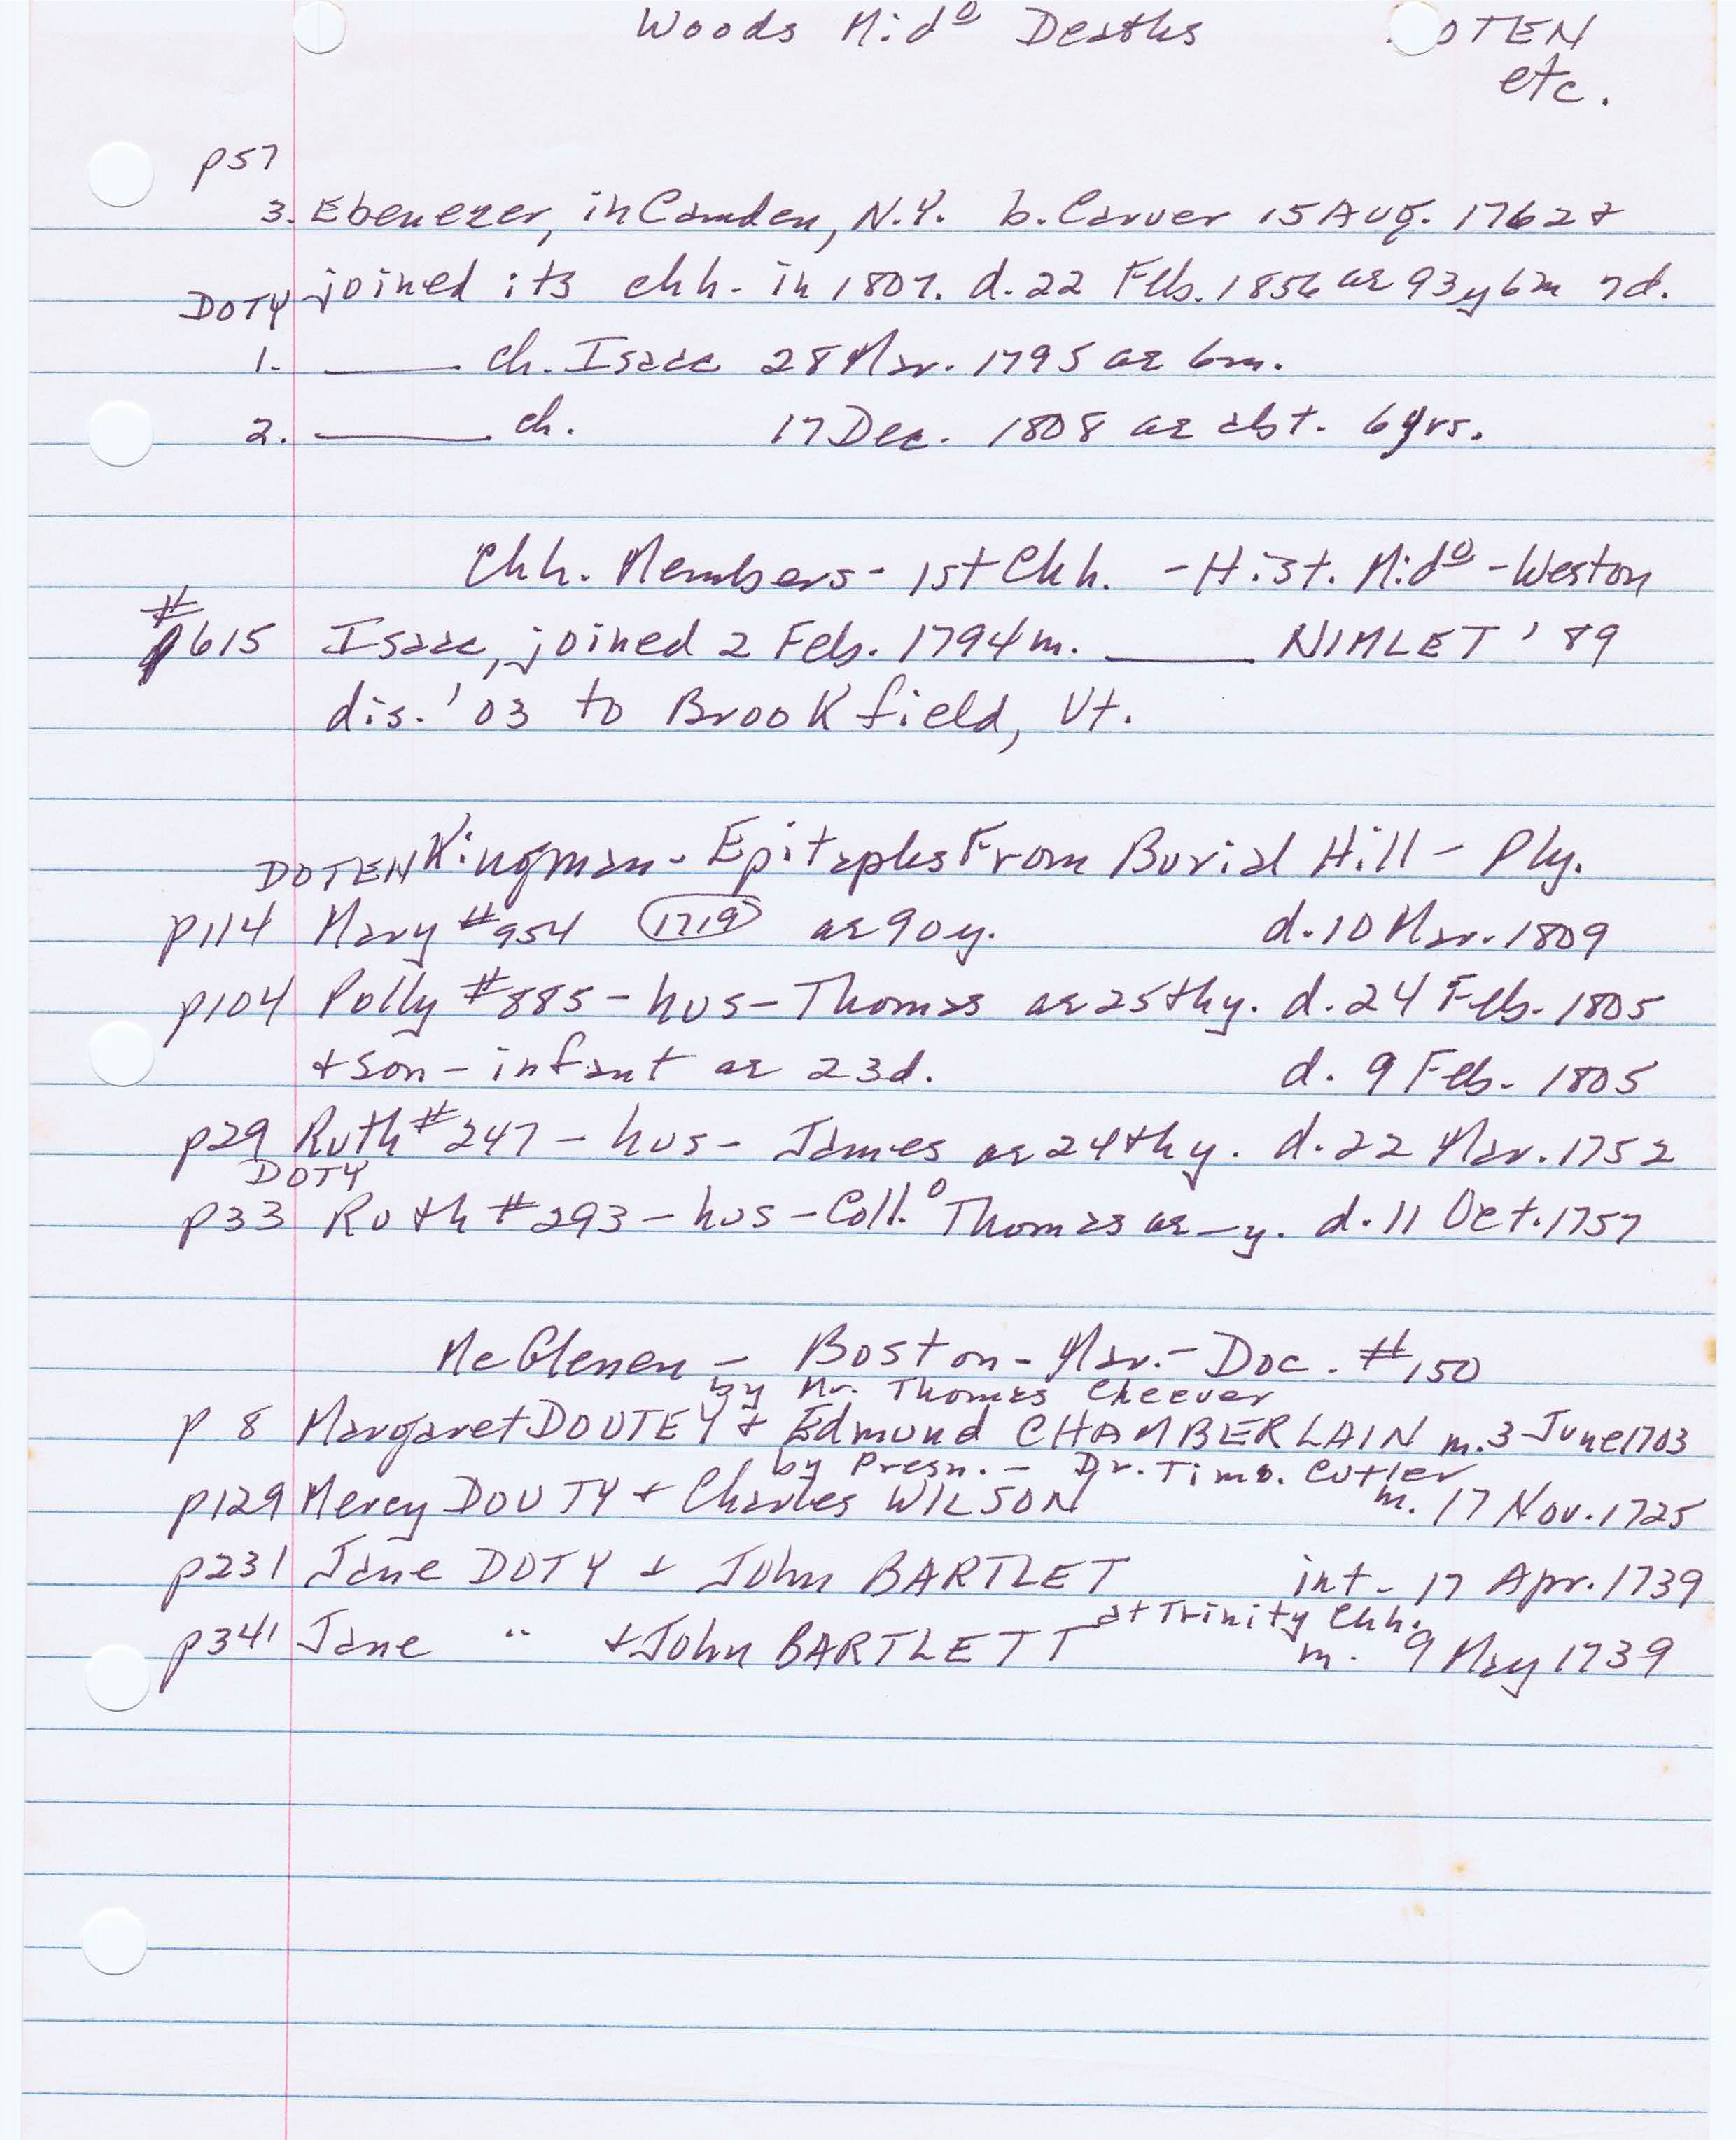 Woods Mid⁰ Deaths OTEN
etc.
p57
3. Ebenezer, in Camden, N.Y. b. Carver 15 Aug. 1762 &
DOTY joined its chh. in 1807. d. 22 Feb. 1856 ae 93y 6m 7d.
1. ____ ch. Isaac 28 Mar. 1795 ae 6m.
2. ____ ch. 17 Dec. 1808 ae abt. 6yrs.
Chh. Members - 1st Chh. - Hist. Mid⁰ - Weston
#615 Isaac, joined 2 Feb. 1794 m. ____ NIMLET '89
dis. '03 to Brookfield, Vt.
DOTEN Kingman - Epitaphs From Burial Hill - Ply.
p114 Mary #954 1719 ae 90y. d. 10 Mar. 1809
p104 Polly #885 - hus - Thomas ae 25thy. d. 24 Feb. 1805
& son - infant ae 23d. d. 9 Feb. 1805
p29 Ruth #247 - hus - James ae 24thy. d. 22 Mar. 1752
DOTY
p33 Ruth #293 - hus - Coll.⁰ Thomas ae - y. d. 11 Oct. 1757
McGlenen - Boston - Mar. - Doc. #150
by Mr. Thomas Cheever
p 8 Margaret DOUTEY & Edmund CHAMBERLAIN m. 3 June 1703
by Presn. - Dr. Timo. Cutler
p129 Mercy DOUTY & Charles WILSON m. 17 Nov. 1725
p231 Jane DOTY & John BARTLET int - 17 Apr. 1739
at Trinity Chh.
p341 Jane " & John BARTLETT m. 9 May 1739